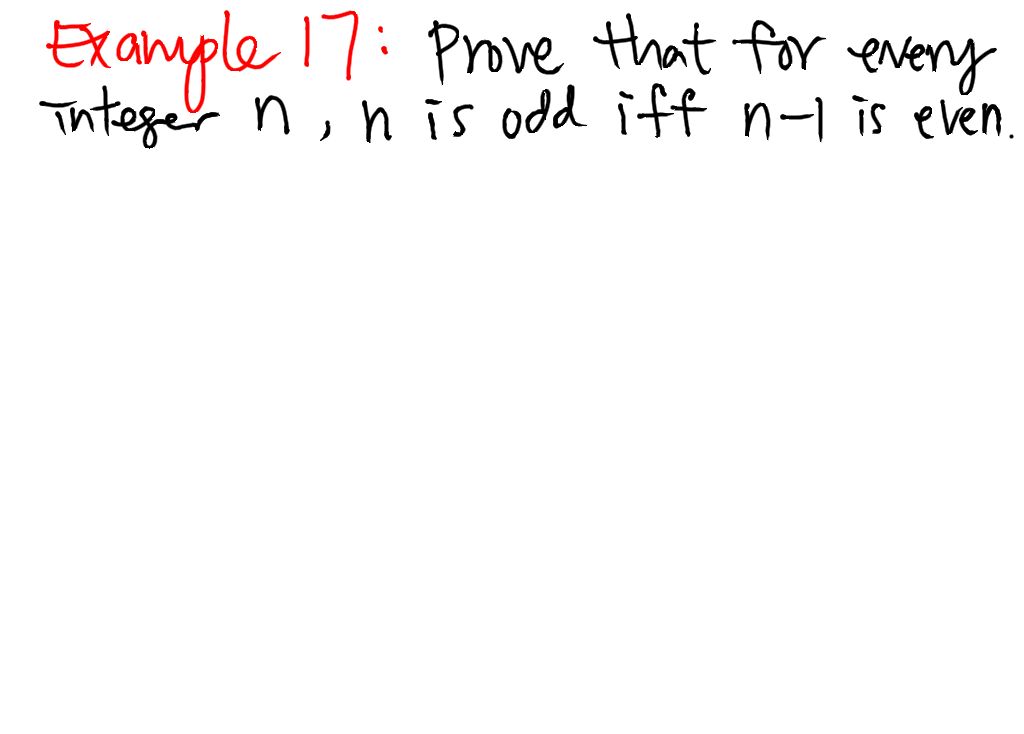 Example 17: Prove that for every
integer n, n is odd iff n-1 is even.